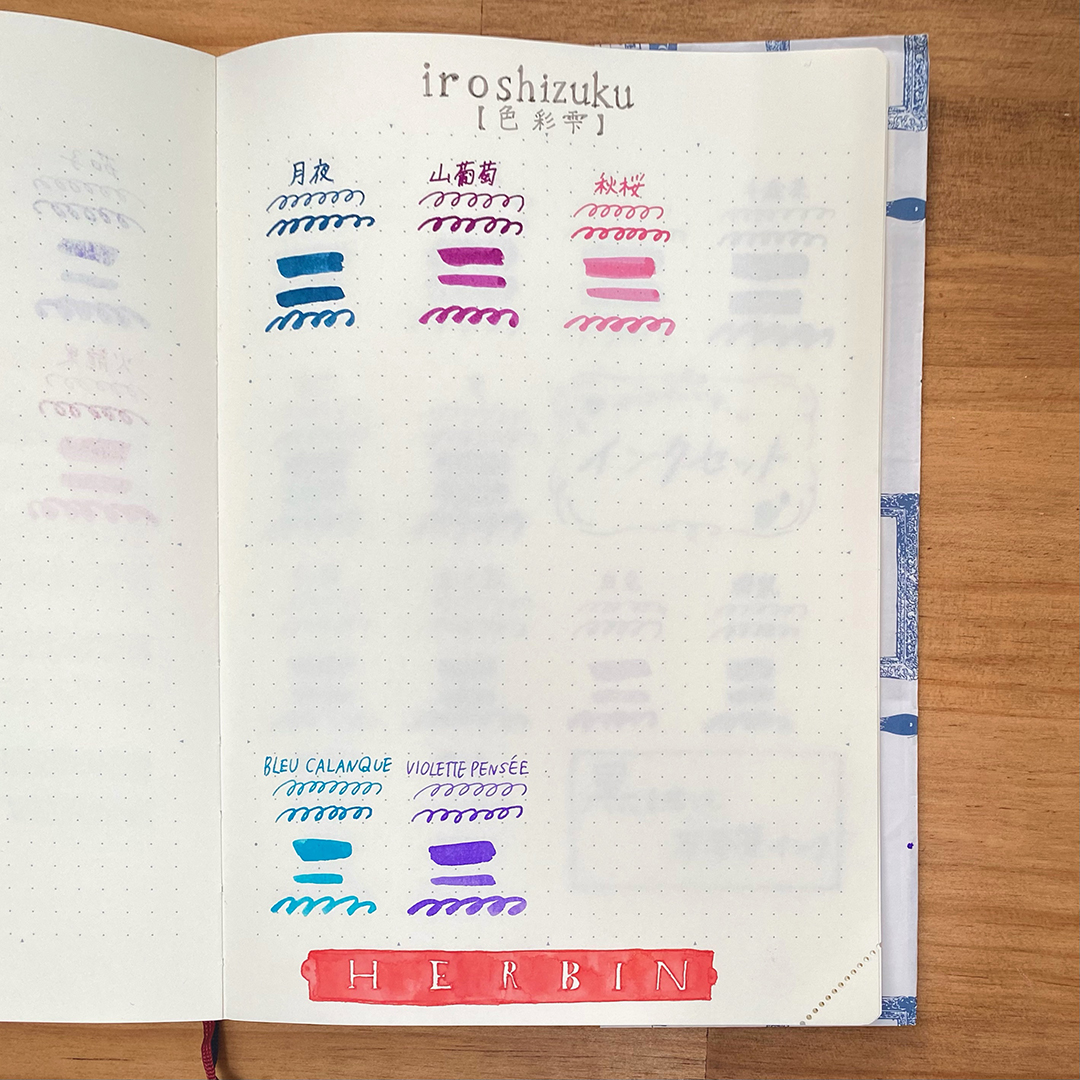 iroshizuku
【色彩雫】
月夜 山葡萄 秋桜
インクセット
BLEU CALANQUE VIOLETTE PENSÉE
HERBIN